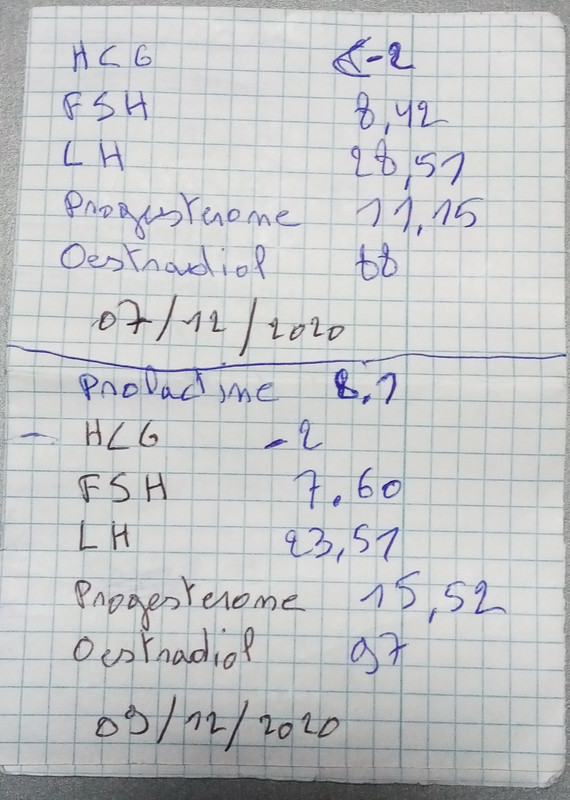 HCG -2
FSH 8,42
LH 28,51
Progesterone 11,15
Oestradiol 68
07/12/2020
Prolactine 8,1
- HCG -2
FSH 7.60
LH 23,51
Progesterone 15,52
Oestradiol 97
09/12/2020